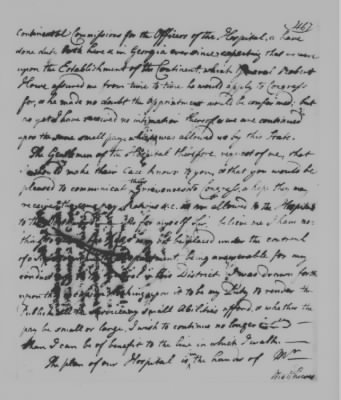 467
Continental Commissions for the Officers of the Hospital, & have
done duty both here & in Georgia ever since, expecting that we were
upon the Establishment of the Continent, which General Robert
Howe assured me from time to time he would apply to Congress
for, & he made no doubt the appointment would be confirmed, but
as yet I have received no intimation thereof & we are continued
upon the same small pay, which was allowed us by this State.
The Gentlemen of the Hospital therefore, request of me, that
I would make their Case known to you, & that you would be
pleased to communicate their Grievances to Congress, & hope they may
receive the same pay, Rations &c. as are allowed to the Hospitals
to the As for myself Sir, believe me I have no
thing may not be placed under the control
of a Department, being answerable for my
conduct in this District. I was drawn forth
upon this occasion thinking it to be my Duty to render the
Public all the Services my small Abilities afford, & whether the
pay be small or large, I wish to continue no longer in it
than I can be of benefit to the line in which I walk.
The plan of our Hospital is in the hands of Mr.